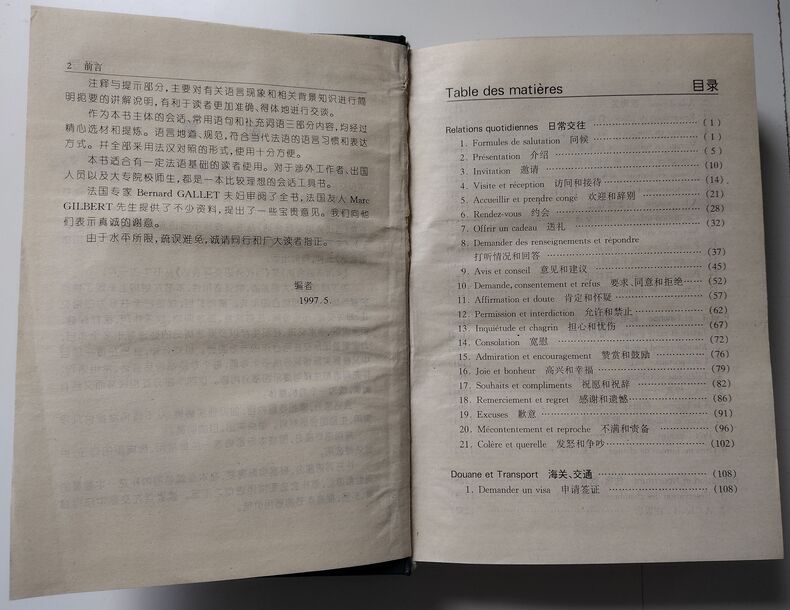 2 前言
注释与提示部分,主要对有关语言现象和相关背景知识进行简
明扼要的讲解说明,有利于读者更加准确、得体地进行交谈。
作为本书主体的会话、常用语句和补充词语三部分内容,均经过
精心选材和提炼。语言地道、规范,符合当代法语的语言习惯和表达
方式。并全部采用法汉对照的形式,使用十分方便。
本书适合有一定法语基础的读者使用。对于涉外工作者、出国
人员以及大专院校师生,都是一本比较理想的会话工具书。
法国专家 Bernard GALLET 夫妇审阅了全书,法国友人 Marc
GILBERT 先生提供了不少资料,提出了一些宝贵意见。我们向他
们表示真诚的谢意。
由于水平所限,疏误难免,诚请同行和广大读者指正。
编者
1997.5.
Table des matières 目录
Relations quotidiennes 日常交往 ……………………… (1)
1. Formules de salutation 问候 ……………………… (1)
2. Présentation 介绍 ……………………… (5)
3. Invitation 邀请 ……………………… (10)
4. Visite et réception 访问和接待 ……………………… (14)
5. Accueillir et prendre congé 欢迎和辞别 ……………… (21)
6. Rendez-vous 约会 ……………………… (28)
7. Offrir un cadeau 送礼 ……………………… (32)
8. Demander des renseignements et répondre
打听情况和回答 ……………………… (37)
9. Avis et conseil 意见和建议 ……………………… (45)
10. Demande, consentement et refus 要求、同意和拒绝 …… (52)
11. Affirmation et doute 肯定和怀疑 ……………………… (57)
12. Permission et interdiction 允许和禁止 ……………… (62)
13. Inquiétude et chagrin 担心和忧伤 ……………… (67)
14. Consolation 宽慰 ……………………… (72)
15. Admiration et encouragement 赞赏和鼓励 ……………… (76)
16. Joie et bonheur 高兴和幸福 ……………………… (79)
17. Souhaits et compliments 祝愿和祝辞 ……………… (82)
18. Remerciement et regret 感谢和遗憾 ……………… (86)
19. Excuses 歉意 ……………………… (91)
20. Mécontentement et reproche 不满和责备 ……………… (96)
21. Colère et querelle 发怒和争吵 ……………………… (102)
Douane et Transport 海关、交通 ……………………… (108)
1. Demander un visa 申请签证 ……………………… (108)